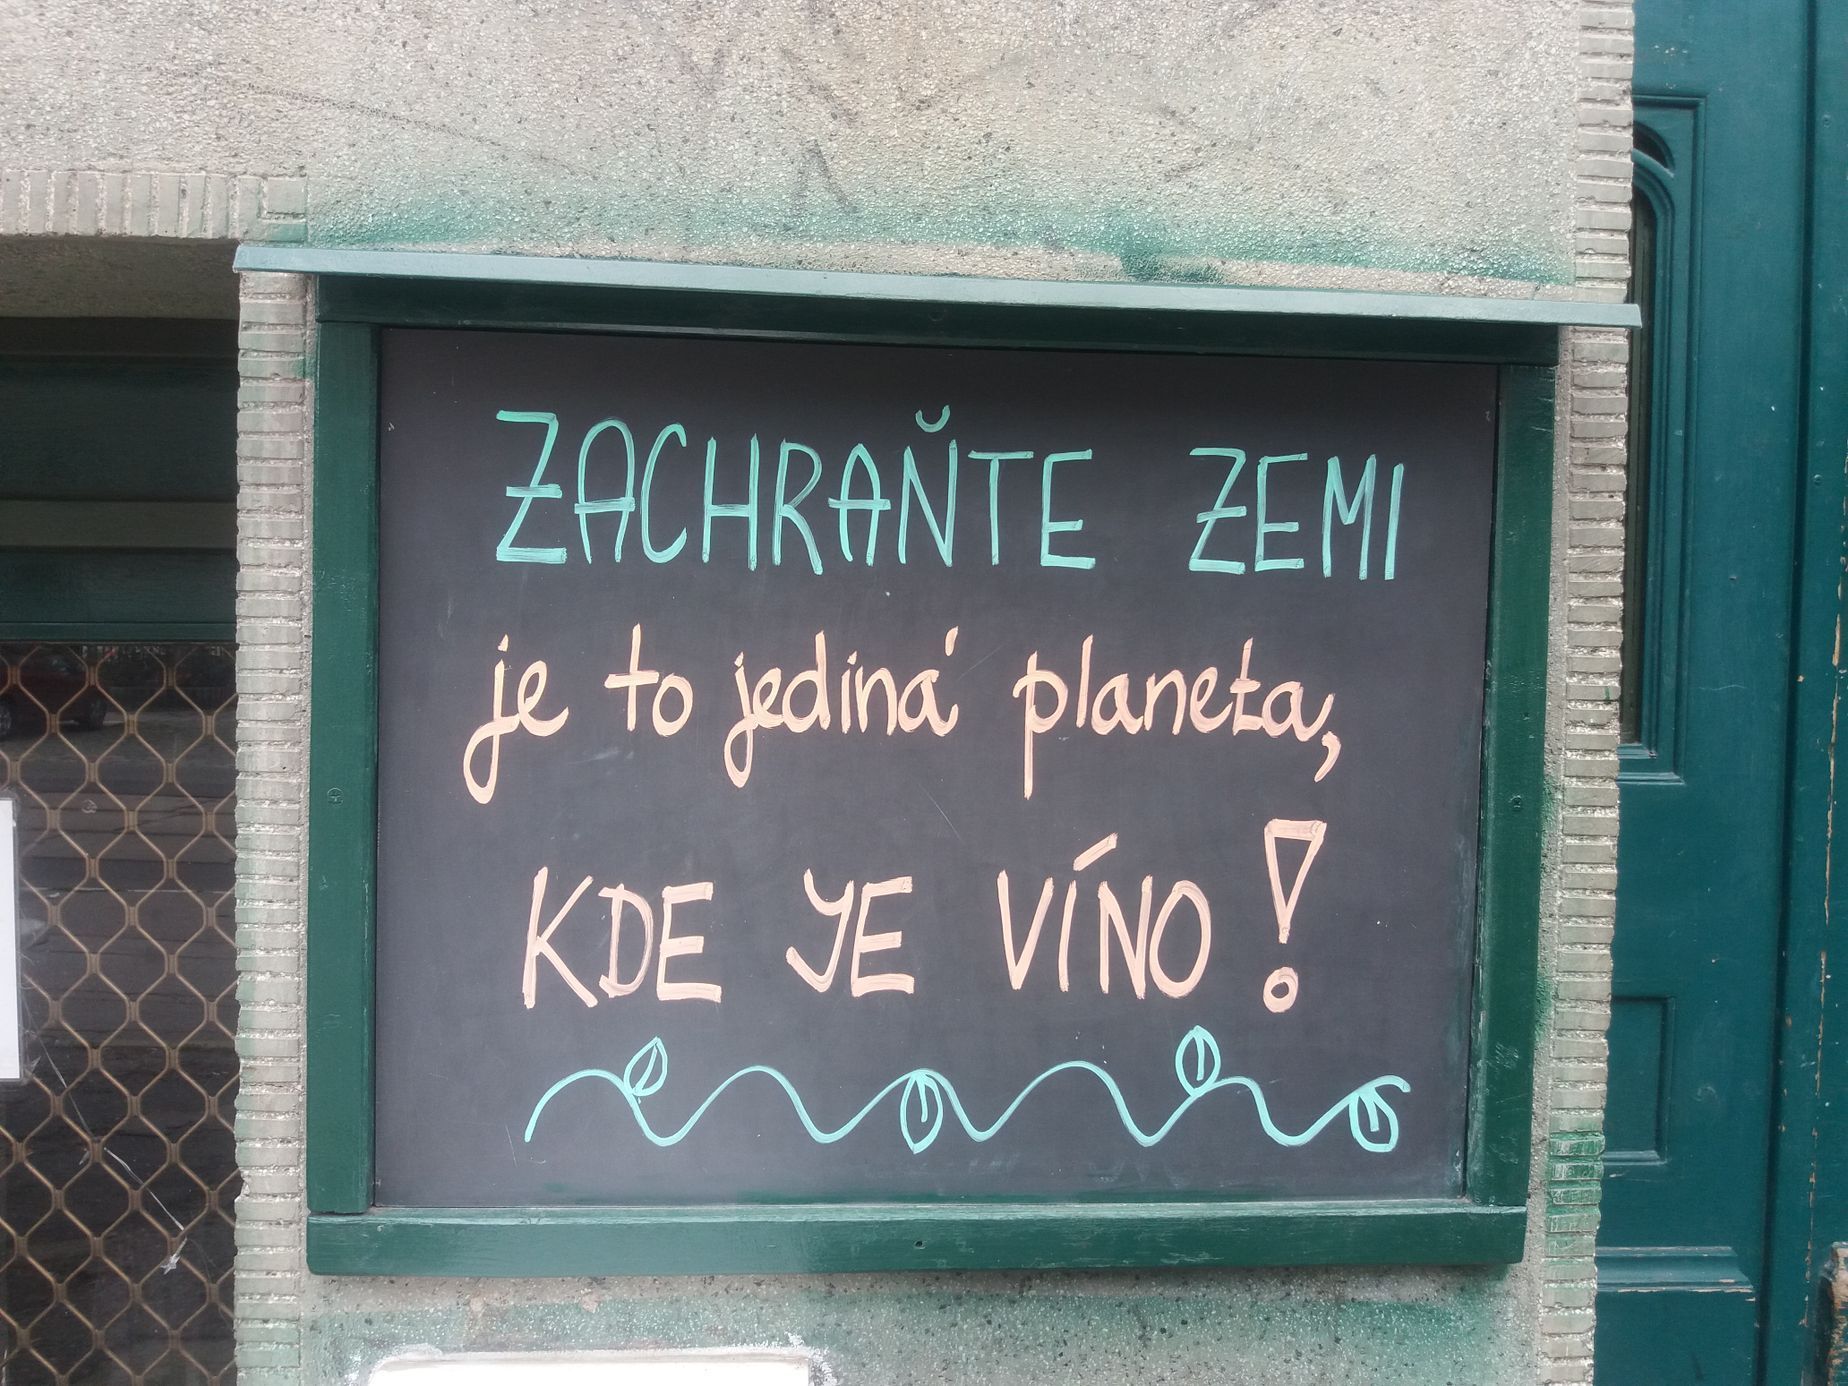 ZACHRAŇTE ZEMI
je to jediná planeta,
KDE JE VÍNO!